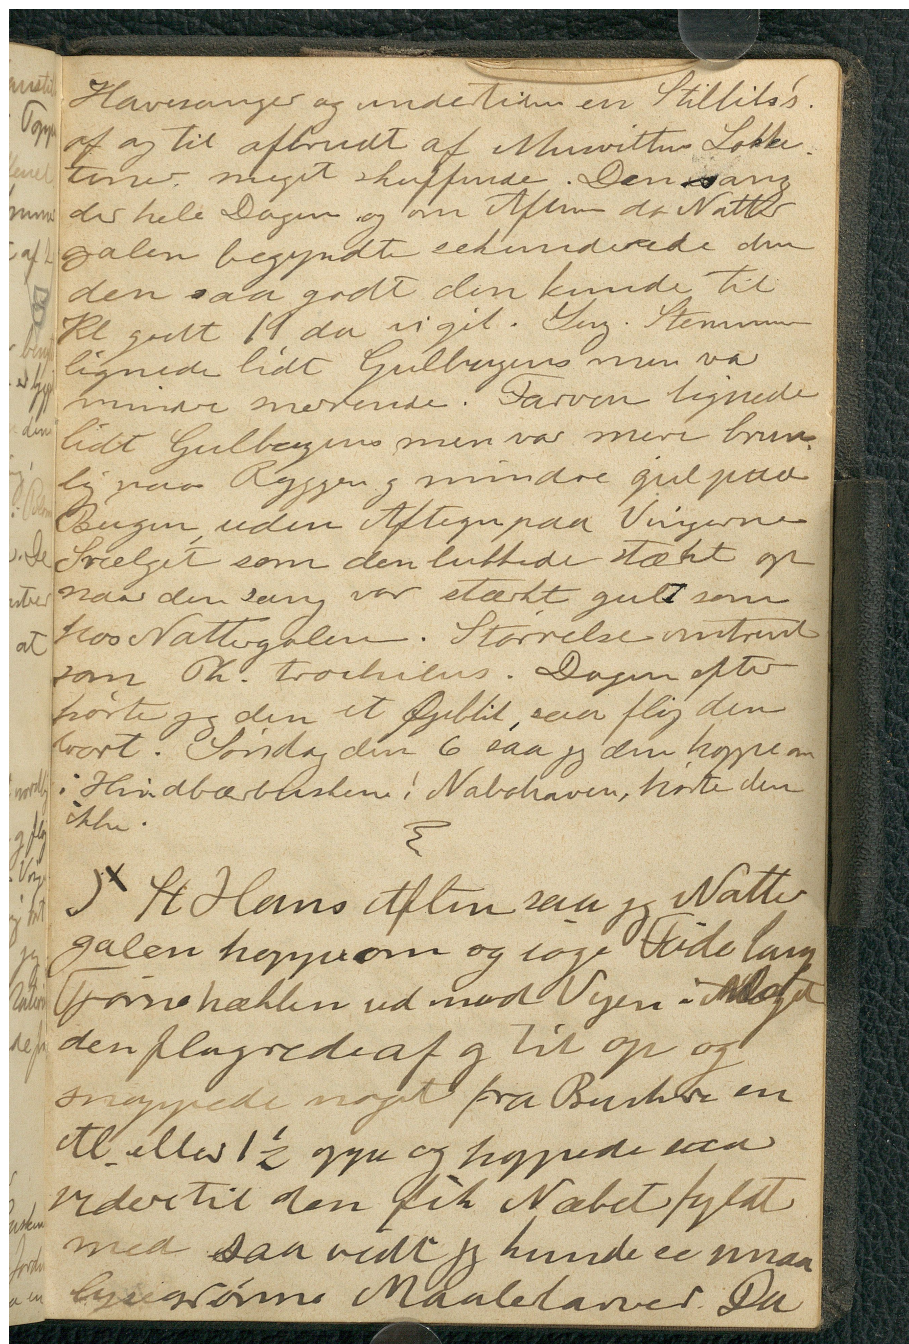 Havesanger og undertiden en Stillits's.
af og til afbrudt af Musvittens Lokke-
toner. meget skuffende. Den sang
der hele Dagen og om Aften da Natter
galen begyndte sekunderede den
den saa godt den kunde til
Kl godt 11 da vi gik. Stemmen
lignede lidt Gulbugens men var
mindre snerrende. Farven lignede
lidt Gulbugens men var mere brun-
lig paa Ryggen og mindre gul paa
Bugen, uden Aftegn paa Vingerne
Svælget som den lukkede stærkt op
naar den sang var stærkt gult som
hos Nattergalen. Størrelse omtrent
som Ph. trochilus. Dagen efter
hørte jeg den et Øjeblik, saa fløj den
bort. Søndag den 6 saa jeg den hoppe om
i Hindbærbuskene i Nabohaven, hørte den
ikke.
St Hans Aften saa jeg Natter
galen hoppe om og søge Føde langs
Tjørnehækken ud mod Vejen i
den flagrede af og til op og
snappede noget fra Buskene en
Al. eller 1½ oppe og hoppede saa
videre til den fik Næbet fyldt
med saa vidt jeg kunde se smaa
lysegrønne Maalelarver. Da